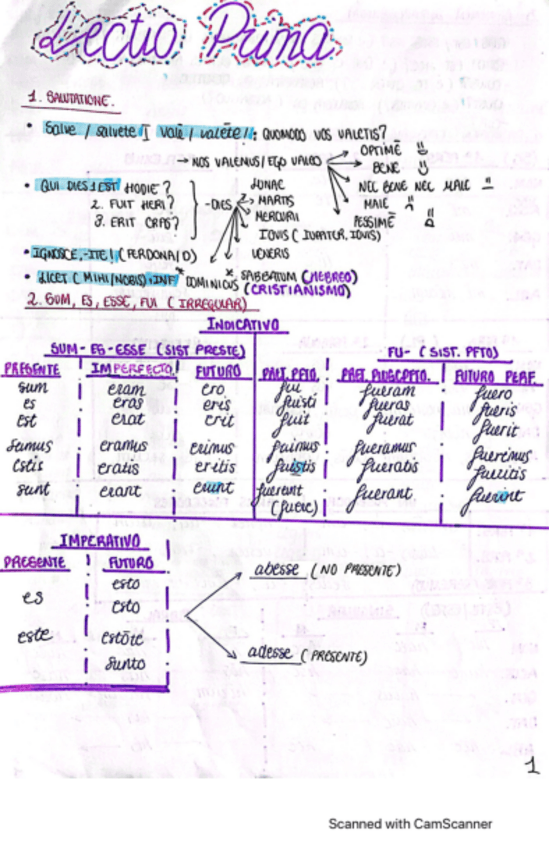 Lectio Prima
1. SALUTATIONE.
Salve / salvete I vale / valete!!: QUOMODO VOS VALETIS?
→ NOS VALEMUS / EGO VALEO
OPTIMĒ
BENE
NEC BENE NEC MALE
MALE
PESSIMĒ
• QUI DIES 1 EST HODIE?
2. FUIT HERI?
3. ERIT CRAS?
- DIES
LUNAE
MARTIS
MERCURII
IOVIS (IUPITER, IOVIS)
VENERIS
* SABBATUM (HEBREO)
* DOMINICUS (CRISTIANISMO)
• IGNOSCE, -ITE! (PERDONA/D)
• LICET (MIHI/NOBIS) + INF
2. SUM, ES, ESSE, FUI (IRREGULAR)
INDICATIVO
SUM - ES - ESSE (SIST PRESTE) FU- (SIST. PFTO)
PRESENTE IMPERFECTO FUTURO PRET. PFTO. PRET. PLUSCPFTO. FUTURO PERF.
sum eram ero fui fueram fuero
es eras eris fuisti fueras fueris
est erat erit fuit fuerat fuerit
sumus eramus erimus fuimus fueramus fuerimus
estis eratis eritis fuistis fueratis fueritis
sunt erant erunt fuerunt (fuere) fuerant fuerint
IMPERATIVO
PRESENTE FUTURO
esto
es esto
este estōte
sunto
abesse (NO PRESENTE)
adesse (PRESENTE)
1
Scanned with CamScanner